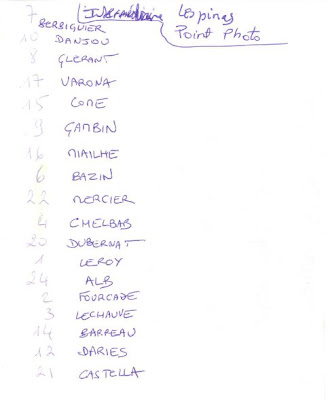 7 BERBIGUIER
Intermédiaire Lespinas
Point Photo
10 DANJOU
8 GLERANT
17 VARONA
15 COME
9 GAMBIN
16 MIAILHE
6 BAZIN
22 MERCIER
4 CHELBAB
20 DUBERNAT
1 LEROY
24 ALB
2 FOURCADE
3 LECHAUVE
14 BARREAU
12 DARIES
21 CASTELLA